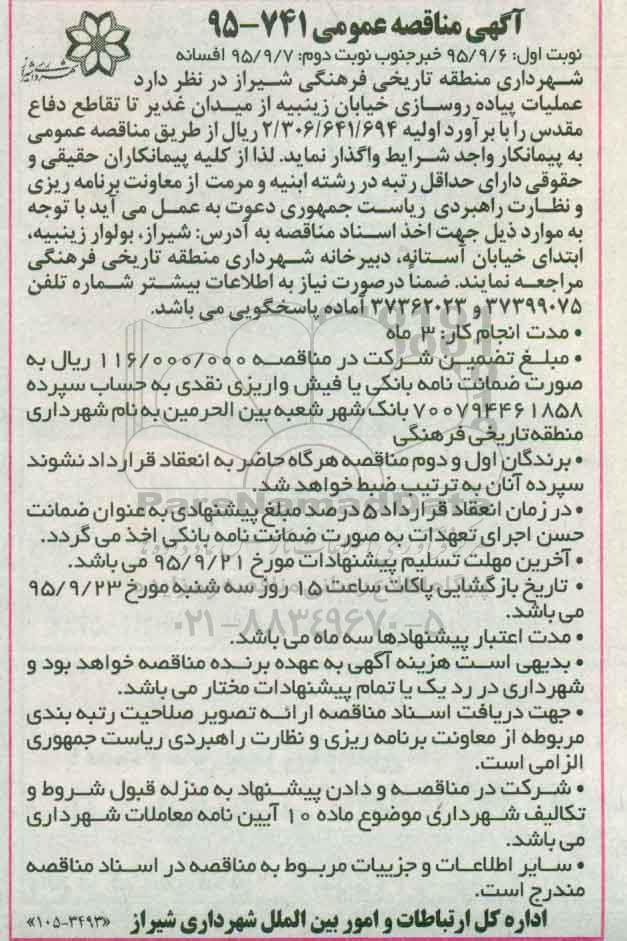 آگهی مناقصه عمومی ۷۴۱-۹۵
نوبت اول: ۹۵/۹/۶ خبرجنوب نوبت دوم: ۹۵/۹/۷ افسانه
شهرداری منطقه تاریخی فرهنگی شیراز در نظر دارد
عملیات پیاده روسازی خیابان زینبیه از میدان غدیر تا تقاطع دفاع
مقدس را با برآورد اولیه ۲/۳۰۶/۶۴۱/۶۹۴ ریال از طریق مناقصه عمومی
به پیمانکار واجد شرایط واگذار نماید. لذا از کلیه پیمانکاران حقیقی و
حقوقی دارای حداقل رتبه در رشته ابنیه و مرمت از معاونت برنامه ریزی
و نظارت راهبردی ریاست جمهوری دعوت به عمل می آید با توجه
به موارد ذیل جهت اخذ اسناد مناقصه به آدرس: شیراز، بولوار زینبیه،
ابتدای خیابان آستانه، دبیرخانه شهرداری منطقه تاریخی فرهنگی
مراجعه نمایند. ضمنا درصورت نیاز به اطلاعات بیشتر شماره تلفن
۳۷۳۹۹۰۷۵ و ۳۷۳۶۲۰۲۳ آماده پاسخگویی می باشد.
• مدت انجام کار: ۳ ماه
• مبلغ تضمین شرکت در مناقصه ۱۱۶/۰۰۰/۰۰۰ ریال به
صورت ضمانت نامه بانکی یا فیش واریزی نقدی به حساب سپرده
۷۰۰۷۹۴۴۶۱۸۵۸ بانک شهر شعبه بین الحرمین به نام شهرداری
منطقه تاریخی فرهنگی
• برندگان اول و دوم مناقصه هرگاه حاضر به انعقاد قرارداد نشوند
سپرده آنان به ترتیب ضبط خواهد شد.
• در زمان انعقاد قرارداد ۵ درصد مبلغ پیشنهادی به عنوان ضمانت
حسن اجرای تعهدات به صورت ضمانت نامه بانکی اخذ می گردد.
• آخرین مهلت تسلیم پیشنهادات مورخ ۹۵/۹/۲۱ می باشد.
• تاریخ بازگشایی پاکات ساعت ۱۵ روز سه شنبه مورخ ۹۵/۹/۲۳
می باشد.
۰۲۱-۸۸۳۴۹۶۷۰-۵
• مدت اعتبار پیشنهادها سه ماه می باشد.
• بدیهی است هزینه آگهی به عهده برنده مناقصه خواهد بود و
شهرداری در رد یک یا تمام پیشنهادات مختار می باشد.
• جهت دریافت اسناد مناقصه ارائه تصویر صلاحیت رتبه بندی
مربوطه از معاونت برنامه ریزی و نظارت راهبردی ریاست جمهوری
الزامی است.
• شرکت در مناقصه و دادن پیشنهاد به منزله قبول شروط و
تکالیف شهرداری موضوع ماده ۱۰ آیین نامه معاملات شهرداری
می باشد.
• سایر اطلاعات و جزییات مربوط به مناقصه در اسناد مناقصه
مندرج است.
اداره کل ارتباطات و امور بین الملل شهرداری شیراز «۳۴۹۳-۱۰۵»